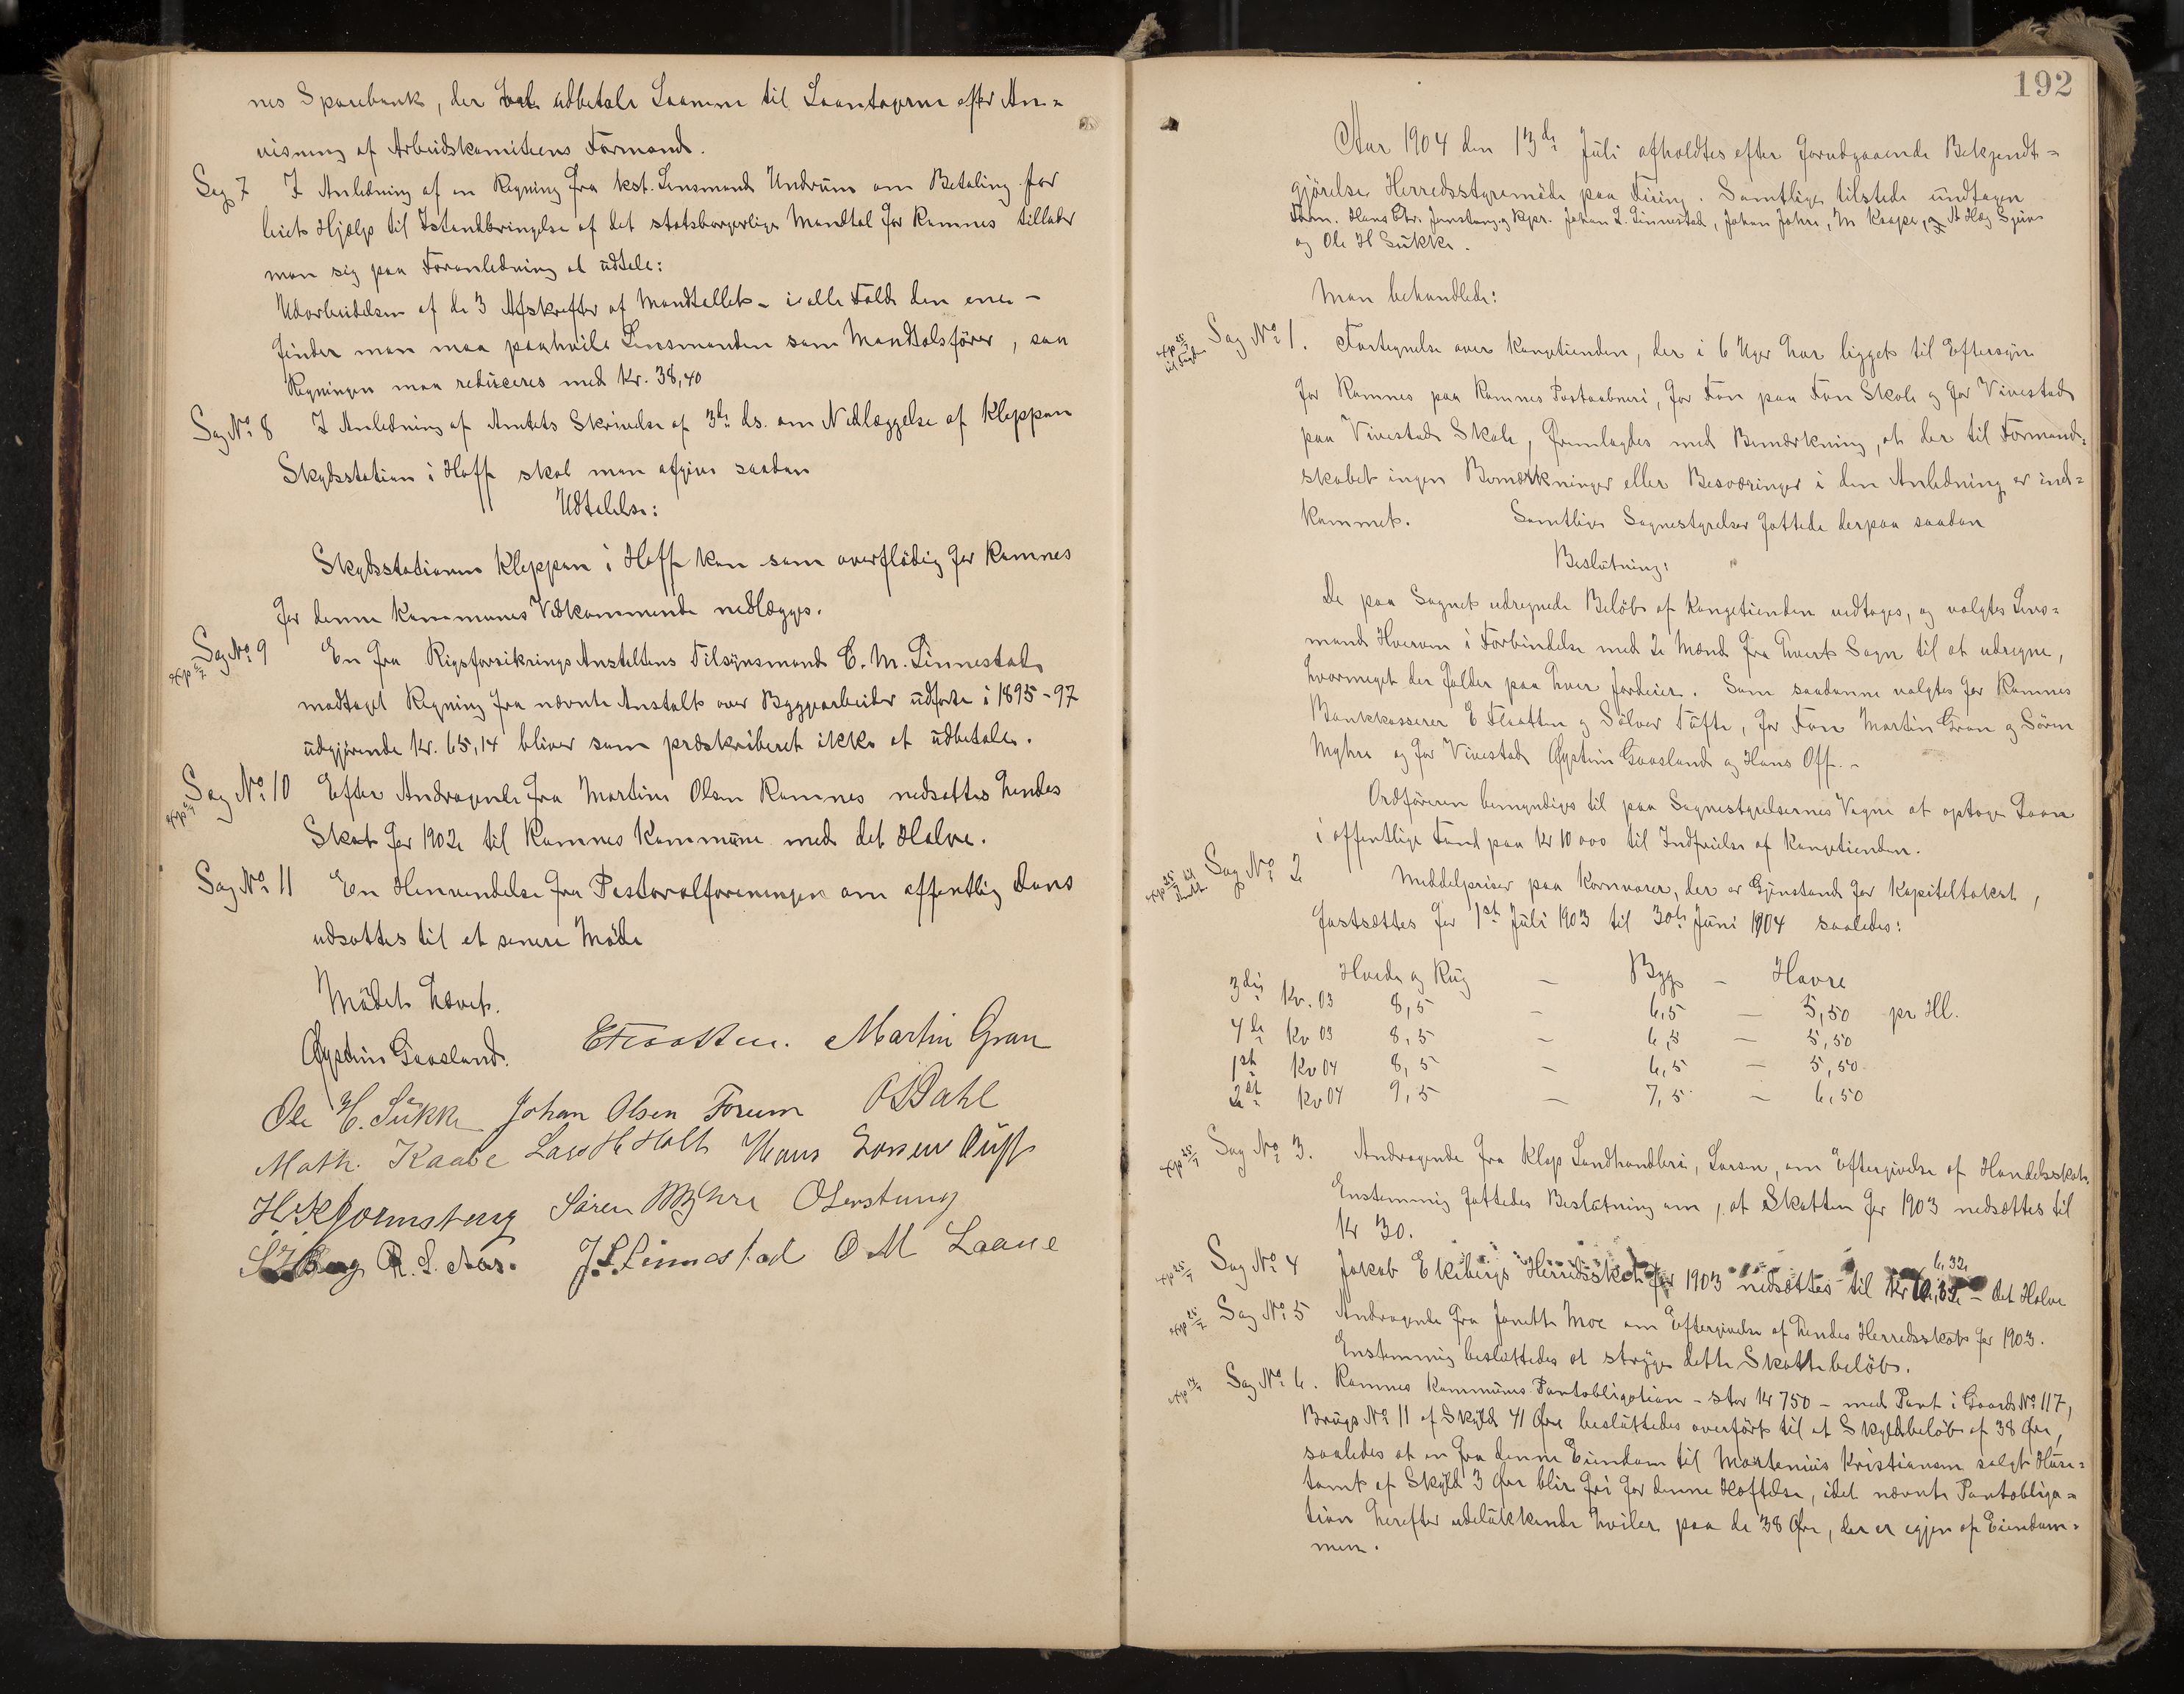 nes Sparebank, der udbetale Laanene til Laantagerne efter An=
visning af Arbeidskomiteens Formand.
Sag 7 I Anledning af en Regning fra kst. Lensmand Undrum om Betaling for
leiet Hjælp til Istandbringelse af det statsborgerlige Mandtal for Ramnes tillader
man sig paa Foranledning at udtale:
Udarbeidelsen af de 3 Afskrifter af Mandtallet - i alle Fald den ene -
finder man maa paahvile Lensmanden som Mandtalsfører, saa
Regningen maa reduceres med Kr. 38,40
Sag No. 8 I Anledning af Amtets Skrivelse af 3de ds. om Nedlæggelse af Kleppan
Skydsstation i Hoff skal man afgive saadan
Udtalelse:
Skydsstationen Kleppan i Hoff kan som overflødig for Ramnes
for denne Kommunes Vedkommende nedlægges.
Sag No. 9 En fra Rigsforsikrings Anstaltens Tilsynsmand C. M. Linnestad
Exp
modtaget Regning fra nævnte Anstalt over Byggearbeider udførte i 1895-97
udgjørende Kr. 65,14 bliver som præskriberet ikke at udbetale.
Sag No. 10 Efter Andragende fra Martine Olsen Ramnes nedsattes hendes
Exp
Skat for 1902 til Ramnes Kommune med det Halve.
Sag No. 11 En Henvendelse fra Pastoralforeningen om offentlig Dans
udsattes til et senere Møde
Mødet hævet.
Øystein Gaasland. E Traatten. Martin Gran
Ole H. Sukke Johan Olsen Forum O Dahl
Math. Kaabe Lars H Holt Hans Larsen
H. K. Jormstang Søren Myhre O Lerstang
R. S. Aas. J. L. Linnestad O M Laane
192
Aar 1904 den 13de Juli afholdtes efter forudgaaende Bekjendt=
gjørelse Herredsstyremøde paa Firing. Samtlige tilstede undtagen
Form. Hans Chr. Jonstang og Repr. Johan L. Linnestad, Johan Johre, M Kaape,
og Ole H Sukke.
Man behandlede:
Exp 25/7
Sag No. 1. Fortegnelse over Kongetienden, der i 6 Uger har ligget til Eftersyn
for Ramnes paa Ramnes Postaabneri, for Fon paa Fon Skole og for Vivestad
paa Vivestad Skole, fremlagdes med Bemærkning, at der til Formand=
skabet ingen Bemærkninger eller Besværinger i den Anledning er ind=
kommet. Samtlige Sognestyrelser fattede derpaa saadan
Beslutning:
De paa Sognet udregnede Beløb af Kongetienden vedtages, og valgtes Lens=
mand Hvarum i Forbindelse med 2 Mænd fra hvert Sogn til at udregne,
hvormeget der falder paa hver Jordeier. Som saadanne valgtes for Ramnes
Bankkasserer E Traatten og Sølver Tufte, for Fon Martin Gran og Søren
Myhre og for Vivestad Øystein Gaasland og Hans Off. -
Ordføreren bemyndiges til paa Sognestyrelsernes Vegne at optage Laan
i offentlige Fond paa Kr 10 000 til Indfrielse af Kongetienden.
Exp 25/7 til Amtet
Sag No. 2 Middelpriser paa Kornvarer, der er Gjenstand for Kapiteltakst,
fastsættes for 1st Juli 1903 til 30te Juni 1904 saaledes:
Hvede og Rug - Byg - Havre
3die Kv. 03 8,5 - 6,5 - 5,50 pr Hl.
4de Kv 03 8,5 - 6,5 - 5,50
1ste Kv 04 8,5 - 6,5 - 5,50
2det Kv 04 9,5 - 7,5 - 6,50
Exp 25/7
Sag No. 3. Andragende fra Klop Landhandleri, Larsen, om Eftergivelse af Handelsskat.
Enstemmig fattedes Beslutning om, at Skatten for 1903 nedsættes til
Kr 30.
6,32
Exp 25/7
Sag No. 4 Jakob Ekebergs Herredsskat for 1903 nedsættes til Kr 6,32 - det Halve
Exp 25/7
Sag No. 5 Andragende fra Janette Moe om Eftergivelse af hendes Herredsskat for 1903.
Enstemmig besluttedes at stryge dette Skattebeløb.
Exp 14/7
Sag No. 6. Ramnes Kommunes Pantobligation - stor Kr 750 - med Pant i Gaards No. 117,
Brugs No. 11 af Skyld 41 Øre besluttedes overført til et Skyldbeløb af 38 Øre,
saaledes at en fra denne Eiendom til Martenius Kristiansen solgt Huse=
tomt af Skyld 3 Øre blir fri for denne Hæftelse, idet nævnte Pantobliga=
tion herefter udelukkende hviler paa de 38 Øre, der er igjen af Eiendom=
men.